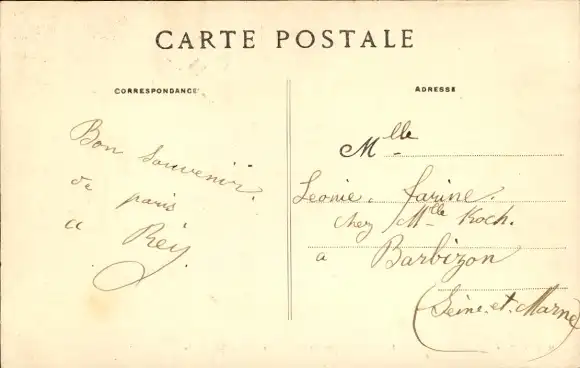 CARTE POSTALE
CORRESPONDANCE
Bon Souvenir.
de paris
a Rey.
ADRESSE
Mlle
Leonie. farine.
chez Mlle Koch.
a Barbizon
(Seine.et.Marne)